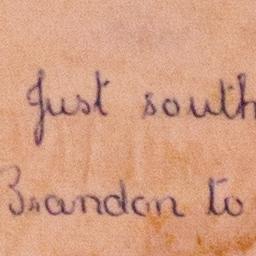 Just south
Brandon to